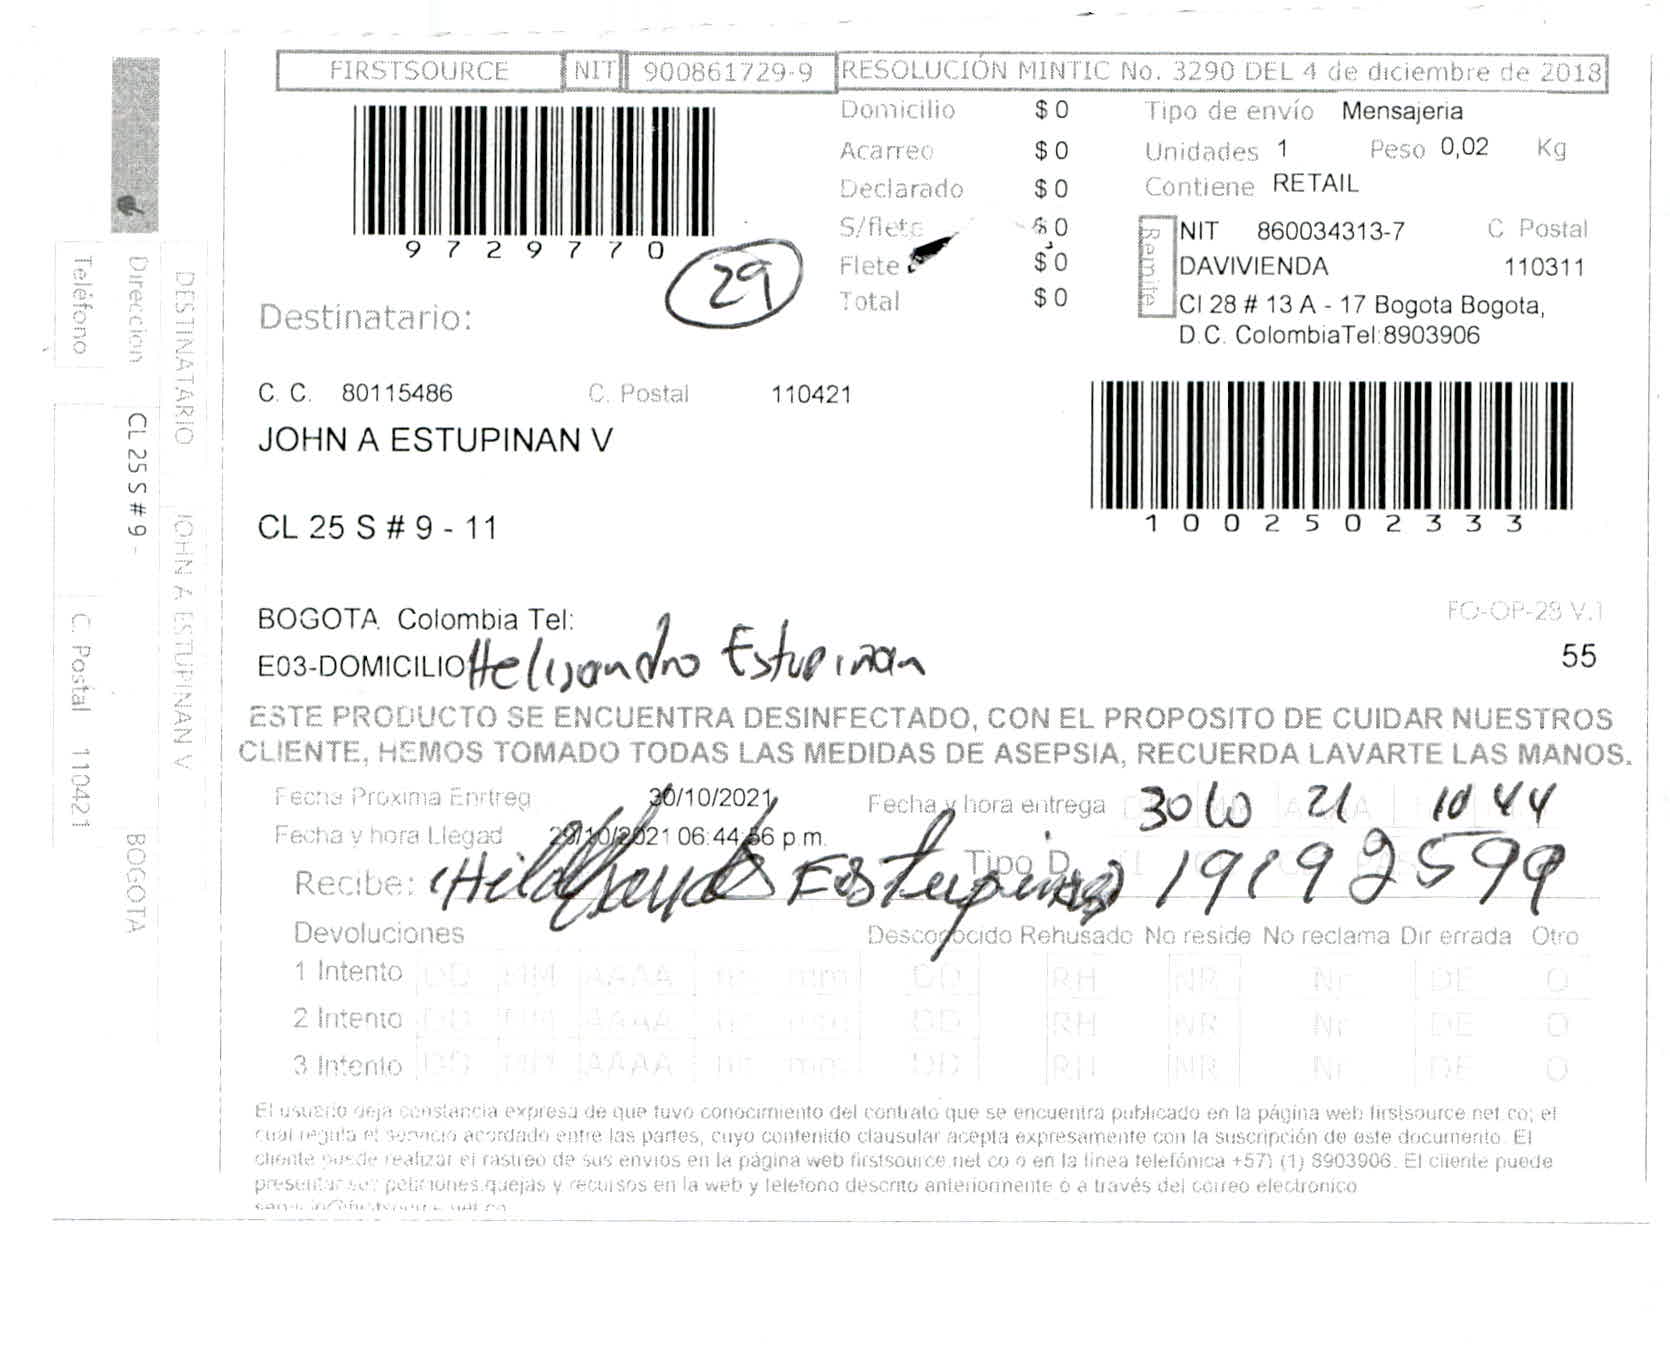 FIRSTSOURCE NIT 900861729-9 RESOLUCIÓN MINTIC No. 3290 DEL 4 de diciembre de 2018
9729770
29
Domicilio $ 0
Acarreo $ 0
Declarado $ 0
S/flete $ 0
Flete $ 0
Total $ 0
Tipo de envío Mensajeria
Unidades 1 Peso 0,02 Kg
Contiene RETAIL
Remite
NIT 860034313-7 C Postal
DAVIVIENDA 110311
Cl 28 # 13 A - 17 Bogota Bogota,
D.C. ColombiaTel:8903906
Destinatario:
C. C. 80115486 C. Postal 110421
JOHN A ESTUPINAN V
1002502333
CL 25 S # 9 - 11
BOGOTA Colombia Tel:
FO-OP-28 V.1
E03-DOMICILIO Estupiñan
55
ESTE PRODUCTO SE ENCUENTRA DESINFECTADO, CON EL PROPOSITO DE CUIDAR NUESTROS
CLIENTE, HEMOS TOMADO TODAS LAS MEDIDAS DE ASEPSIA, RECUERDA LAVARTE LAS MANOS.
Fecha Proxima Enrtreg 30/10/2021 Fecha y hora entrega 30 10 21 10 44
Fecha y hora Llegad 29/10/2021 06:44:56 p.m.
Tipo D.
Recibe: Estupinan
Devoluciones Desconocido Rehusado No reside No reclama Dir errada Otro
1 Intento DD MM AAAA hh mm DD RH NR Nr DE O
2 Intento DD MM AAAA hh mm DD RH NR Nr DE O
3 Intento DD MM AAAA hh mm DD RH NR Nr DE O
El usuario deja constancia expresa de que tuvo conocimiento del contrato que se encuentra publicado en la página web firstsource.net.co; el
cual regula el servicio acordado entre las partes, cuyo contenido clausular acepta expresamente con la suscripción de este documento. El
cliente puede realizar el rastreo de sus envios en la página web firstsource.net.co o en la linea telefónica +57) (1) 8903906. El cliente puede
presentar sus peticiones,quejas y recursos en la web y telefono descrito anteriormente o a través del correo electronico
DESTINATARIO JOHN A ESTUPINAN V
Direccion CL 25 S # 9 - BOGOTA
Teléfono C. Postal 110421